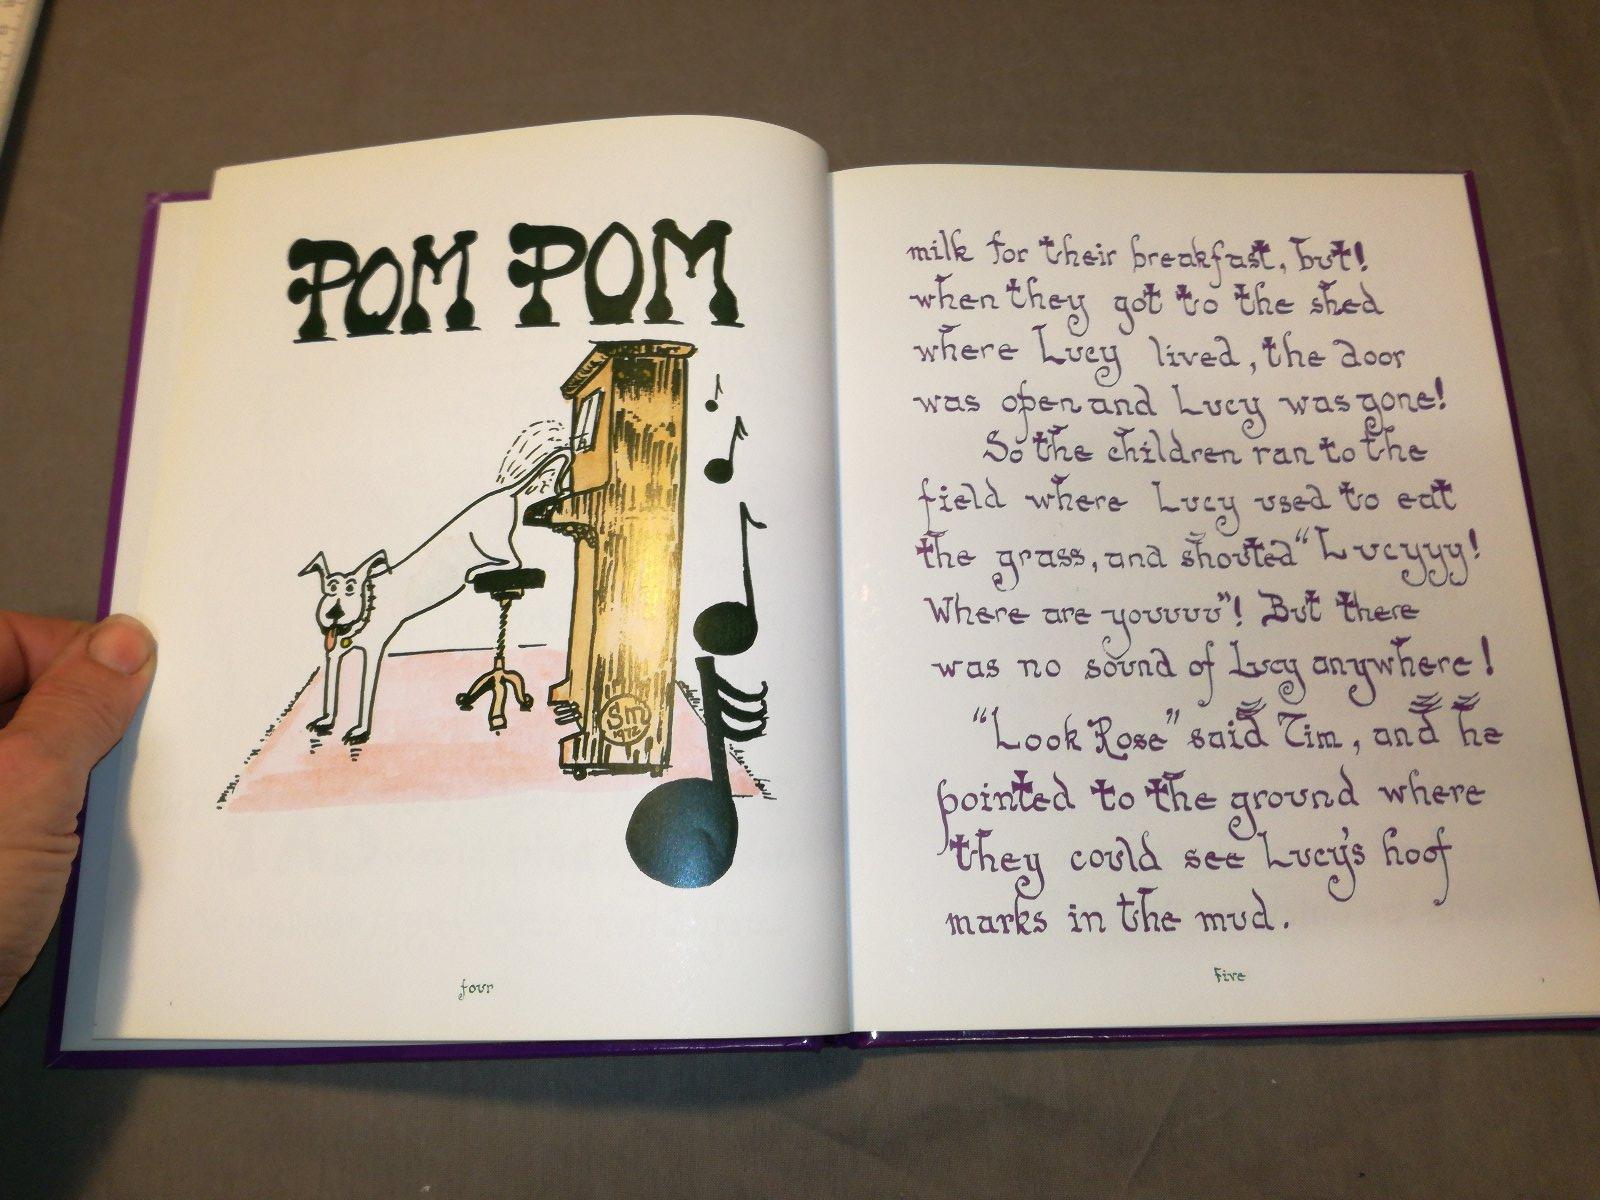 POM POM
Sm
1972
four
milk for their breakfast, but!
when they got to the shed
where Lucy lived, the door
was open and Lucy was gone!
So the children ran to the
field where Lucy used to eat
the grass, and shouted "Lucyyy!
Where are youuuu"! But there
was no sound of Lucy anywhere!
"Look Rose" said Tim, and he
pointed to the ground where
they could see Lucy's hoof
marks in the mud.
five